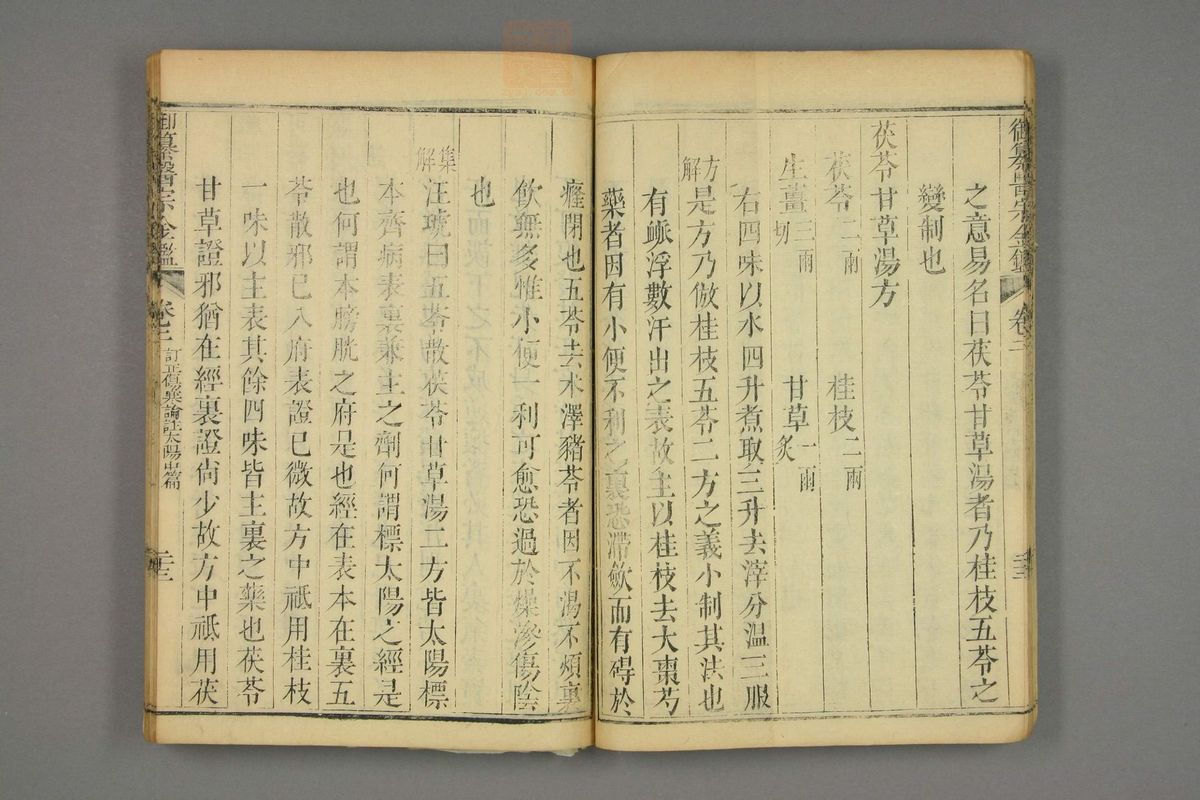 御纂醫宗金鑑 卷二 二十三
之意易名曰茯苓甘草湯者乃桂枝五苓之
變制也
茯苓甘草湯方
茯苓二兩 桂枝二兩
生薑三兩切 甘草一兩炙
右四味以水四升煮取三升去滓分溫三服
方解 是方乃倣桂枝五苓二方之義小制其法也
有脈浮數汗出之表故主以桂枝去大棗芍
藥者因有小便不利之裏恐滯歛而有碍於
癃閉也五苓去朮澤豬苓者因不渴不煩裏
飲無多惟小便一利可愈恐過於燥滲傷陰
也
集解 汪琥曰五苓散茯苓甘草湯二方皆太陽標
本齊病表裏兼主之劑何謂標太陽之經是
也何謂本膀胱之府是也經在表本在裏五
苓散邪已入府表證已微故方中祗用桂枝
一味以主表其餘四味皆主裏之藥也茯苓
甘草證邪猶在經裏證尚少故方中祗用茯
御纂醫宗金鑑 卷二 訂正傷寒論註太陽中篇 二十三